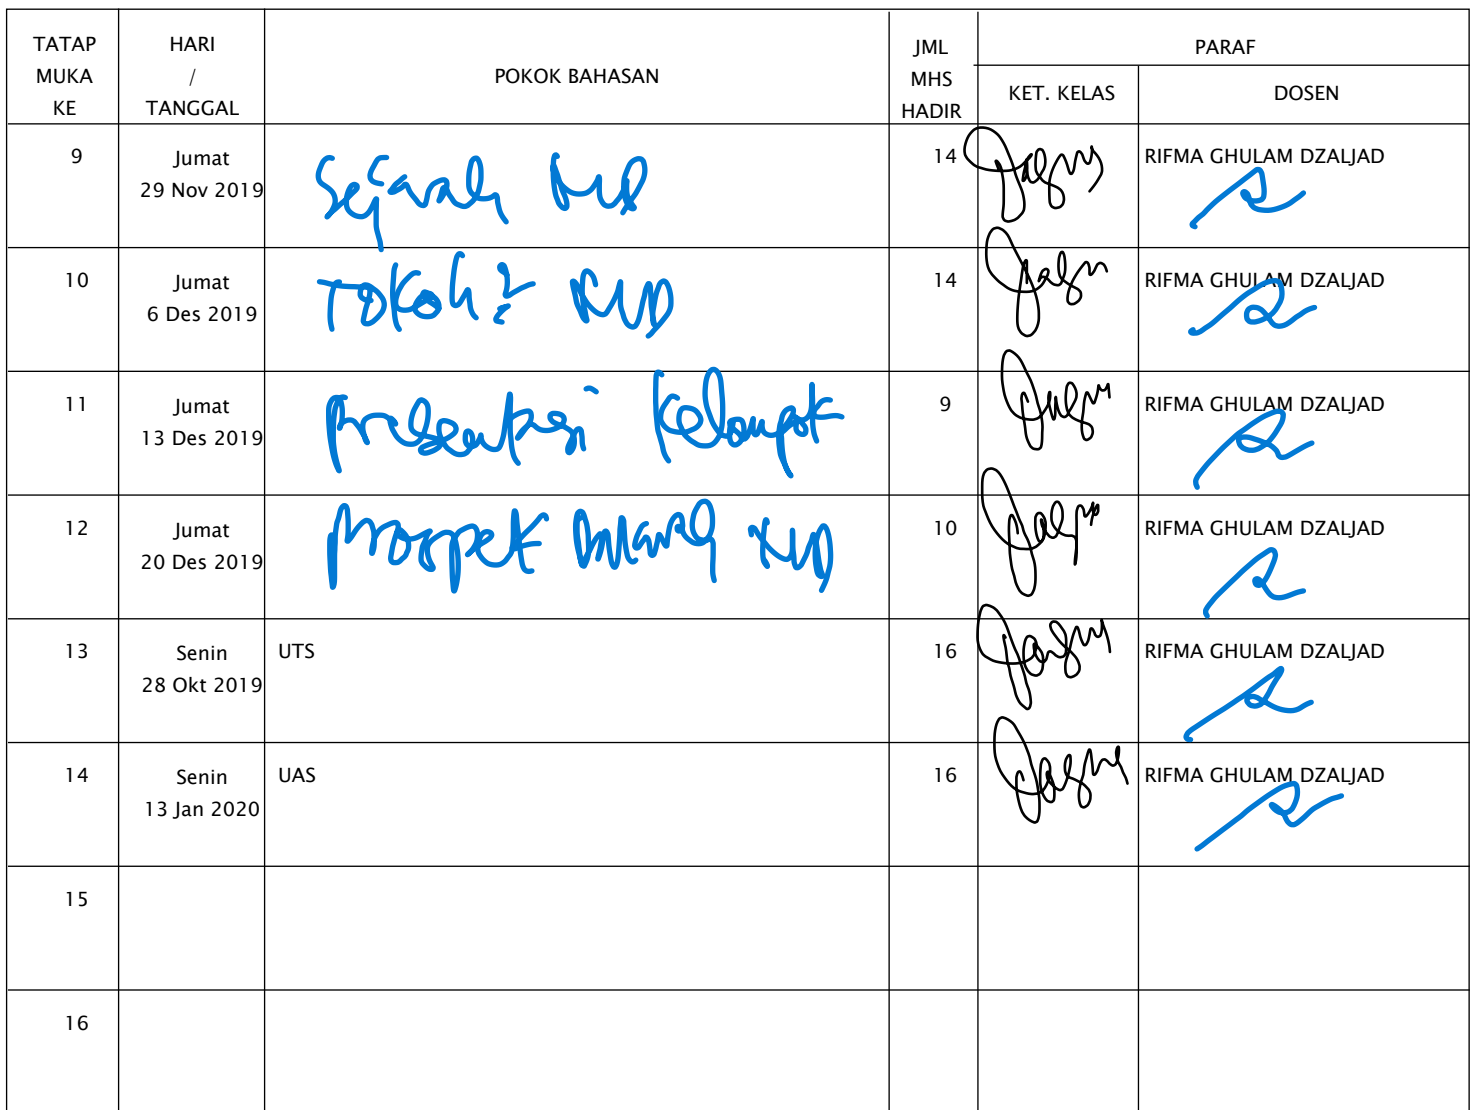 TATAP MUKA KE HARI / TANGGAL POKOK BAHASAN JML MHS HADIR PARAF
KET. KELAS DOSEN
9 Jumat 29 Nov 2019 Sejarah 14 RIFMA GHULAM DZALJAD
10 Jumat 6 Des 2019 Tokoh2 KUD 14 RIFMA GHULAM DZALJAD
11 Jumat 13 Des 2019 Presentasi Kelompok 9 RIFMA GHULAM DZALJAD
12 Jumat 20 Des 2019 Prospek KUD 10 RIFMA GHULAM DZALJAD
13 Senin 28 Okt 2019 UTS 16 RIFMA GHULAM DZALJAD
14 Senin 13 Jan 2020 UAS 16 RIFMA GHULAM DZALJAD
15
16